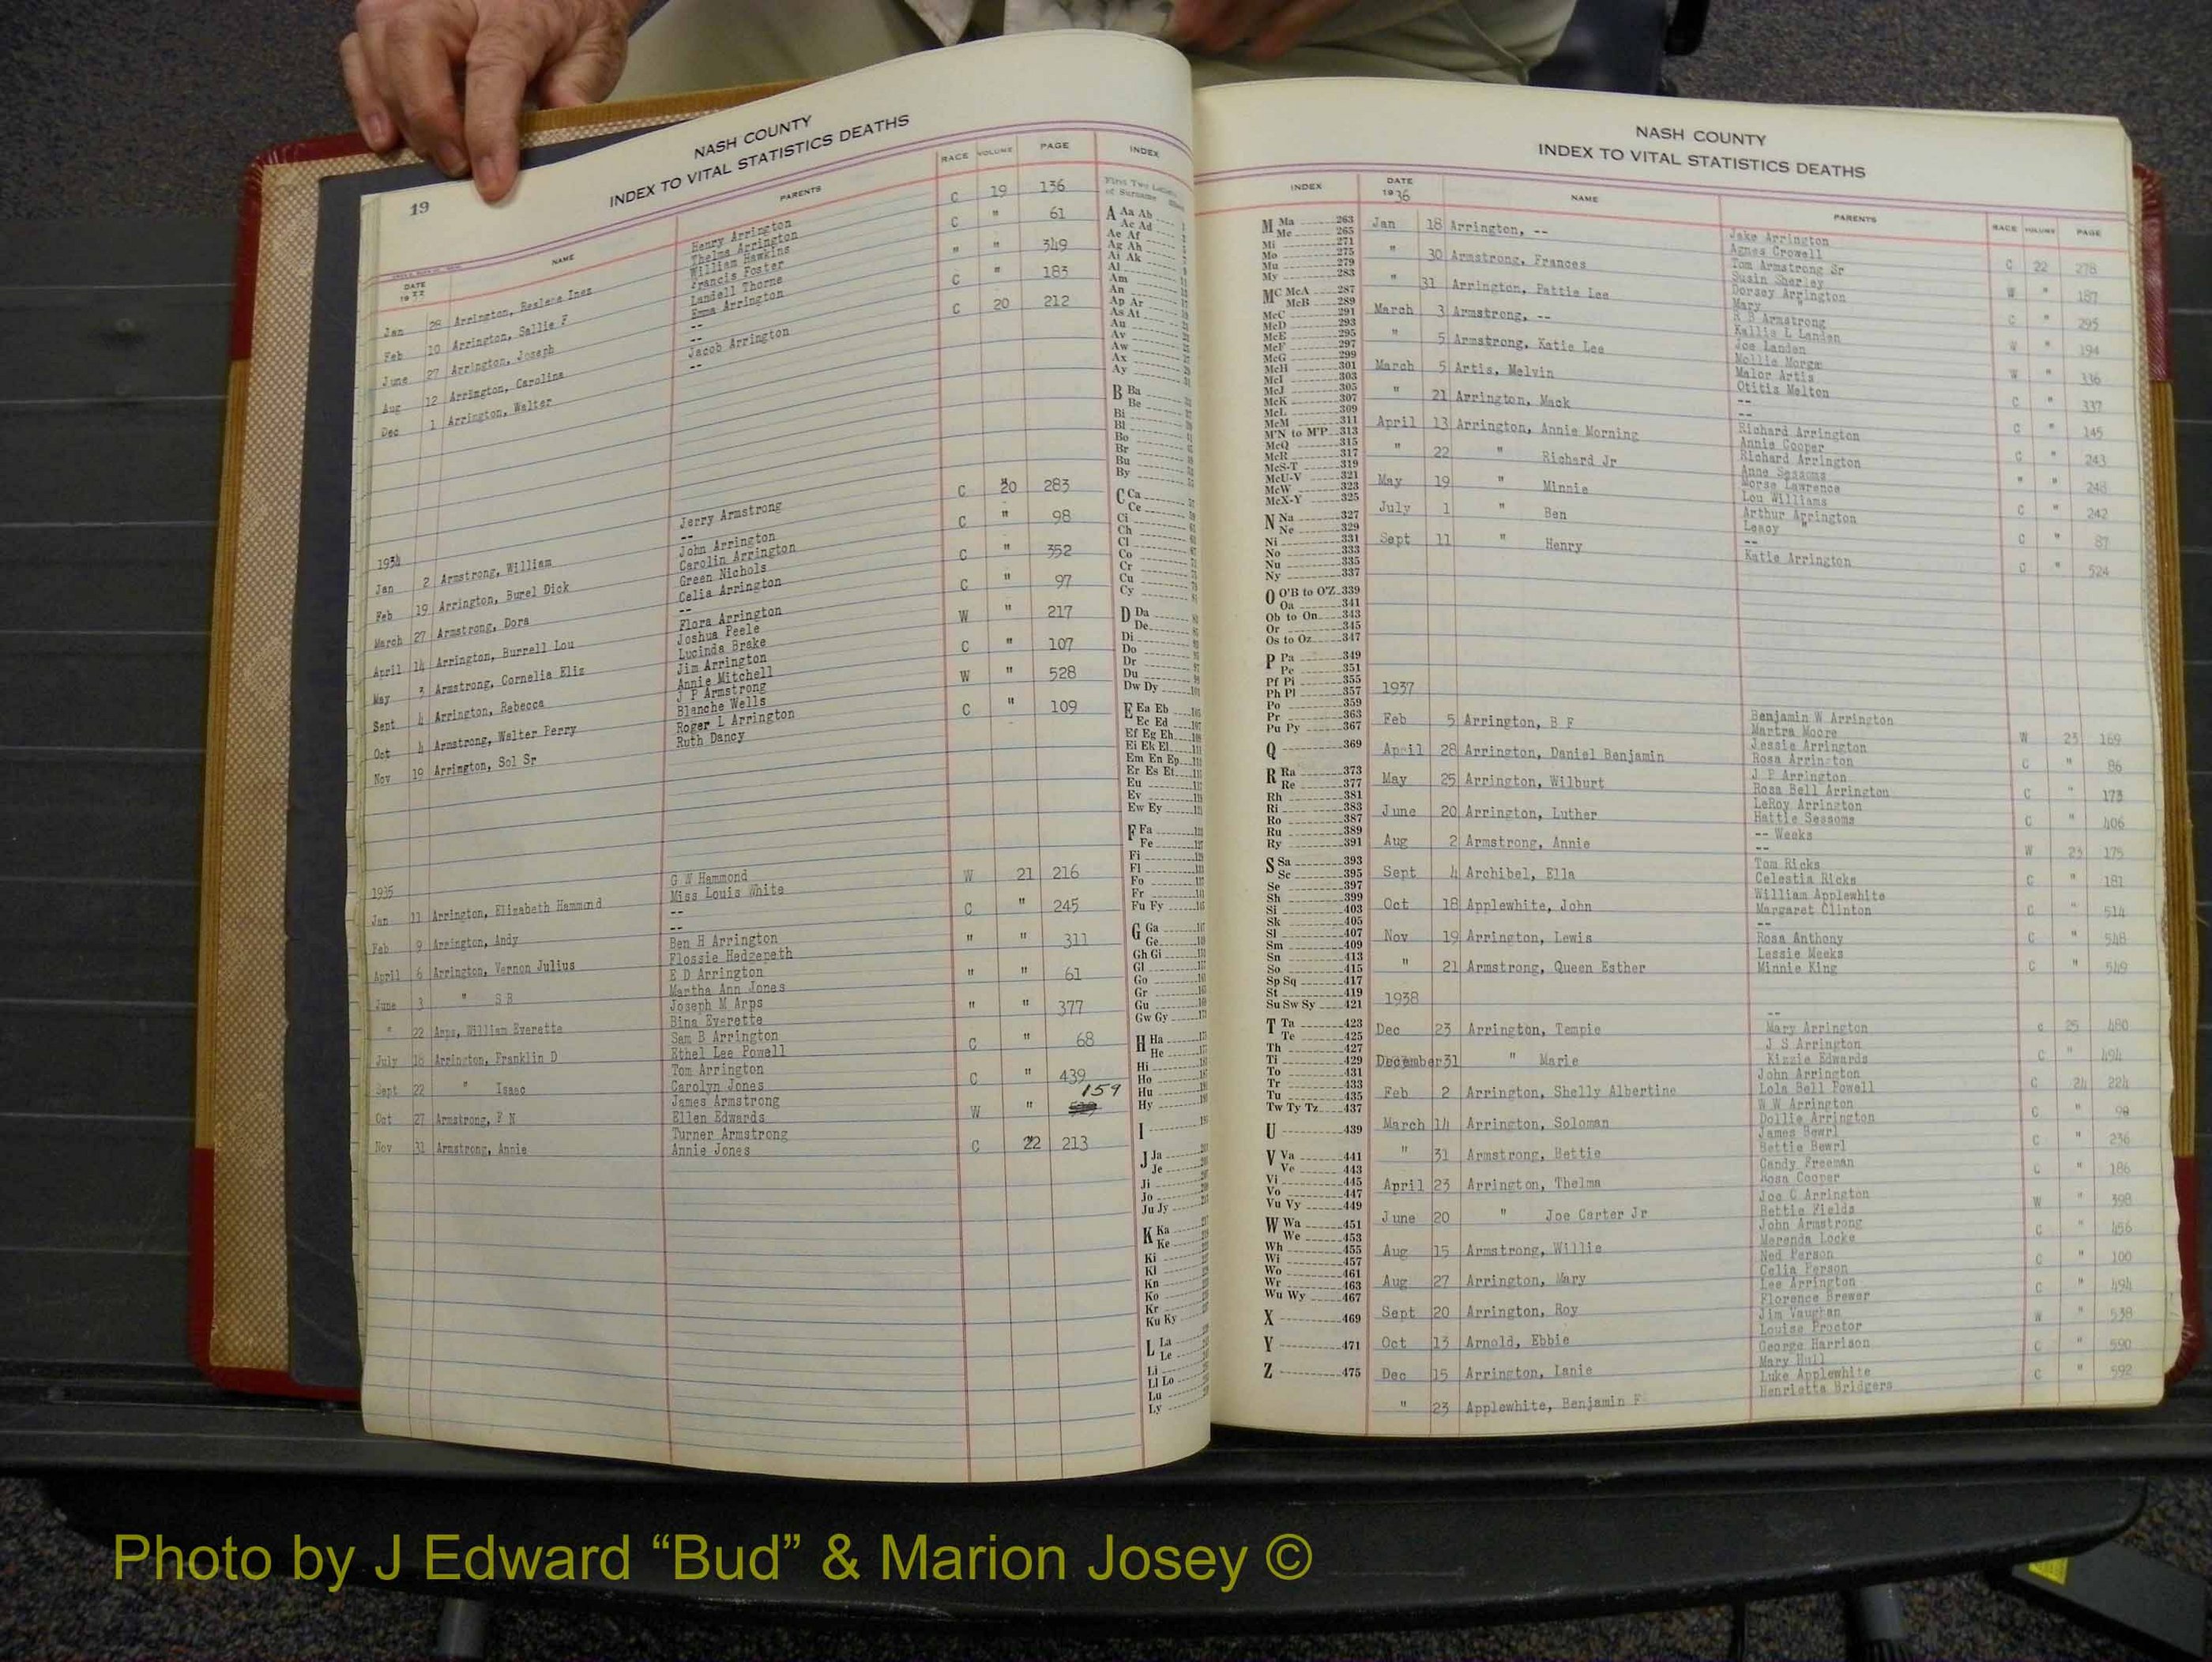 19
NASH COUNTY
INDEX TO VITAL STATISTICS DEATHS
DATE NAME PARENTS RACE VOLUME PAGE INDEX
Henry Arrington
Jan 28 Arrington, Roslene Inez Thelma Arrington C 19 136
William Hawkins
Feb 10 Arrington, Sallie F Francis Foster C " 61
Landell Thorne
June 27 Arrington, Joseph Emma Arrington " " 349
--
Aug 12 Arrington, Carolina -- C " 183
Jacob Arrington
Dec 1 Arrington, Walter -- C 20 212
1934
Jerry Armstrong
Jan 2 Armstrong, William -- C 20 283
John Arrington
Feb 19 Arrington, Burel Dick Carolin Arrington C " 98
Green Nichols
March 27 Armstrong, Dora Celia Arrington C " 352
--
April 14 Arrington, Burrell Lou Flora Arrington C " 97
Joshua Peele
May 3 Armstrong, Cornelia Eliz Lucinda Brake W " 217
Jim Arrington
Sept 4 Arrington, Rebecca Annie Mitchell C " 107
J P Armstrong
Oct 4 Armstrong, Walter Perry Blanche Wells W " 528
Roger L Arrington
Nov 19 Arrington, Sol Sr Ruth Dancy C " 109
1935
G W Hammond
Jan 11 Arrington, Elizabeth Hammond Miss Louis White W 21 216
--
Feb 9 Arrington, Andy -- C " 245
Ben H Arrington
April 6 Arrington, Vernon Julius Flossie Hedgepeth " " 311
E D Arrington
June 3 " S R Martha Ann Jones " " 61
Joseph M Arps
" 22 Arps, William Everette Bina Everette " " 377
Sam B Arrington
July 18 Arrington, Franklin D Ethel Lee Powell C " 68
Tom Arrington
Sept 22 " Isaac Carolyn Jones C " 439
James Armstrong
Oct 27 Armstrong, F N Ellen Edwards W " 159
Turner Armstrong
Nov 31 Armstrong, Annie Annie Jones C 22 213
First Two Letters
of Surname
A Aa Ab
Ac Ad
Ae Af
Ag Ah
Ai Ak
Al
Am
An
Ap Ar
As At
Au
Av
Aw
Ax
Ay
B Ba
Be
Bi
Bl
Bo
Br
Bu
By
C Ca
Ce
Ci
Ch
Cl
Co
Cr
Cu
Cy
D Da
De
Di
Do
Dr
Du
Dw Dy
E Ea Eb
Ec Ed
Ef Eg Eh
Ei Ek El
Em En Ep
Er Es Et
Eu
Ev
Ew Ey
F Fa
Fe
Fi
Fl
Fo
Fr
Fu Fy
G Ga
Ge
Gh Gi
Gl
Go
Gr
Gu
Gw Gy
H Ha
He
Hi
Ho
Hu
Hy
I
J Ja
Je
Ji
Jo
Ju Jy
K Ka
Ke
Ki
Kl
Kn
Ko
Kr
Ku Ky
L La
Le
Li
Ll Lo
Lu
Ly
NASH COUNTY
INDEX TO VITAL STATISTICS DEATHS
INDEX DATE NAME PARENTS RACE VOLUME PAGE
M Ma 263
Me 265
Mi 271
Mo 275
Mu 279
My 283
Mc McA 287
McB 289
McC 291
McD 293
McE 295
McF 297
McG 299
McH 301
McI 303
McJ 305
McK 307
McL 309
McM 311
M'N to M'P 313
McQ 315
McR 317
McS-T 319
McU-V 321
McW 323
McX-Y 325
N Na 327
Ne 329
Ni 331
No 333
Nu 335
Ny 337
O O'B to O'Z 339
Oa 341
Ob to On 343
Or 345
Os to Oz 347
P Pa 349
Pe 351
Pf Pi 355
Ph Pl 357
Po 359
Pr 363
Pu Py 367
Q 369
R Ra 373
Re 377
Rh 381
Ri 383
Ro 387
Ru 389
Ry 391
S Sa 393
Sc 395
Se 397
Sh 399
Si 403
Sk 405
Sl 407
Sm 409
Sn 413
So 415
Sp Sq 417
St 419
Su Sw Sy 421
T Ta 423
Te 425
Th 427
Ti 429
To 431
Tr 433
Tu 435
Tw Ty Tz 437
U 439
V Va 441
Ve 443
Vi 445
Vo 447
Vu Vy 449
W Wa 451
We 453
Wh 455
Wi 457
Wo 461
Wr 463
Wu Wy 467
X 469
Y 471
Z 475
1936
Jan 18 Arrington, -- Jake Arrington
Agnes Crowell C 22 278
" 30 Armstrong, Frances Tom Armstrong Sr
Susin Sherley W " 187
" 31 Arrington, Pattie Lee Dorsey Arrington
Mary " C " 295
March 3 Armstrong, -- R B Armstrong
Kallis L Landen W " 194
" 5 Armstrong, Katie Lee Joe Landen
Mollie Morgan W " 336
March 5 Artis, Melvin Malor Artis
Otitis Melton C " 337
" 21 Arrington, Mack --
-- C " 145
April 13 Arrington, Annie Morning Richard Arrington
Annie Cooper C " 243
" 22 " Richard Jr Richard Arrington
Anne Sessoms " " 248
May 19 " Minnie Morse Lawrence
Lou Williams C " 242
July 1 " Ben Arthur Arrington
Leacy " C " 87
Sept 11 " Henry --
Katie Arrington C " 524
1937
Feb 5 Arrington, B F Benjamin W Arrington
Martra Moore W 23 169
April 28 Arrington, Daniel Benjamin Jessie Arrington
Rosa Arrington C " 86
May 25 Arrington, Wilburt J P Arrington
Rosa Bell Arrington C " 173
June 20 Arrington, Luther LeRoy Arrington
Hattie Sessoms C " 406
Aug 2 Armstrong, Annie -- Weeks
-- W 23 175
Sept 4 Archibel, Ella Tom Ricks
Celestia Ricks C " 181
Oct 18 Applewhite, John William Applewhite
Margaret Clinton C " 514
Nov 19 Arrington, Lewis --
Rosa Anthony C " 548
" 21 Armstrong, Queen Esther Lessie Weeks
Minnie King C " 549
1938
--
Dec 23 Arrington, Tempie Mary Arrington c 25 480
J S Arrington
December 31 " Marie Kizzie Edwards C " 494
John Arrington
Feb 2 Arrington, Shelly Albertine Lola Bell Powell C 24 224
W W Arrington
March 14 Arrington, Soloman Dollie Arrington C " 98
James Bewrl
" 31 Armstrong, Hettie Bettie Bewrl C " 236
Candy Freeman
April 23 Arrington, Thelma Rosa Cooper C " 186
Joe C Arrington
June 20 " Joe Carter Jr Bettie Fields W " 398
John Armstrong
Aug 15 Armstrong, Willie Merenda Locke C " 456
Ned Person
Aug 27 Arrington, Mary Celia Person C " 100
Lee Arrington
Sept 20 Arrington, Roy Florence Brewer C " 494
Jim Vaughan
Oct 13 Arnold, Ebbie Louise Proctor W " 538
George Harrison
Dec 15 Arrington, Lanie Mary Hull C " 590
Luke Applewhite
" 23 Applewhite, Benjamin F Henrietta Bridgers C " 592
Photo by J Edward “Bud” & Marion Josey ©